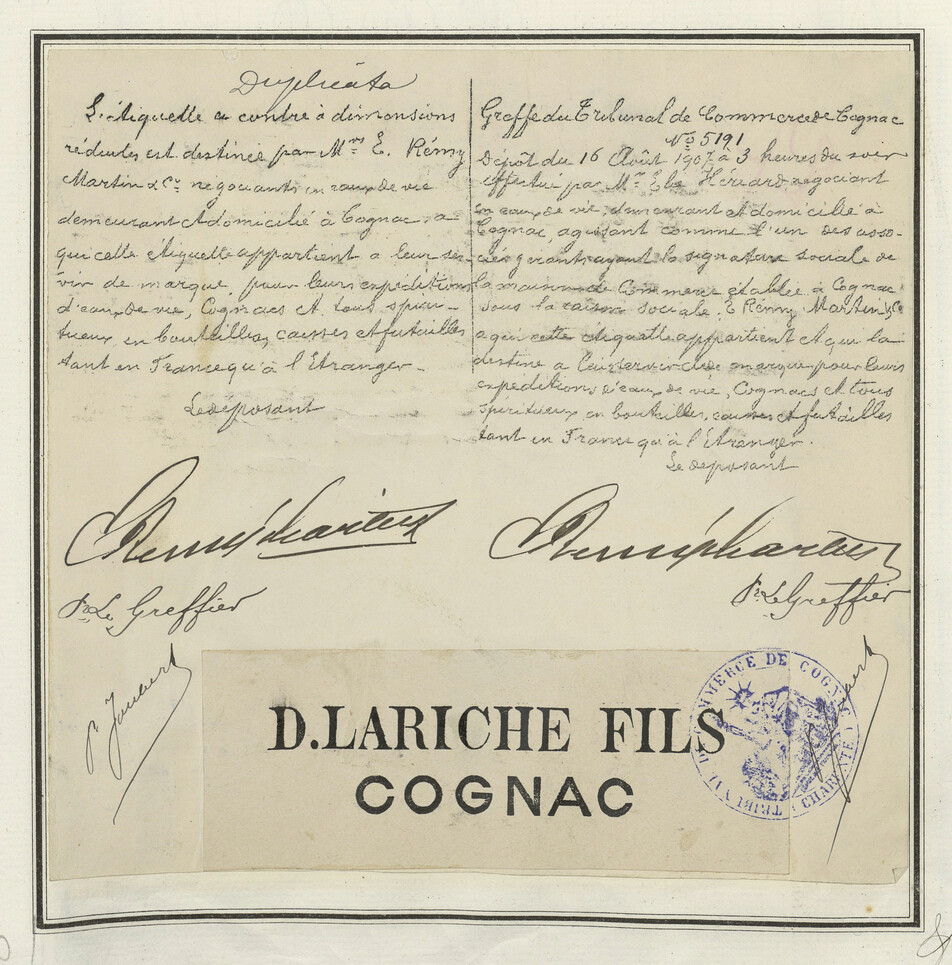 Duplicata
L'étiquette ci contre à dimensions
réduites est destinée par Mrs E. Rémy
Martin & Cie négociants en eaux de vie
demeurant et domicilié à Cognac, a
qui cette étiquette appartient a leur ser-
vir de marque, pour leurs expéditions
d'eaux de vie, Cognacs et tous spiri-
tueux en bouteilles, caisses et futailles
tant en France qu'à l'Etranger.
Le déposant
Rémy Martin
Pr Le Greffier
P. Joubert
Greffe du Tribunal de Commerce de Cognac
No 5191
Dépôt du 16 Août 1907 à 3 heures du soir
effectué par Mr Elie Hériard négociant
en eaux de vie, demeurant et domicilié à
Cognac, agissant comme l'un des asso-
ciés gérants ayant la signature sociale de
la maison de Commerce établie à Cognac
sous la raison sociale, E Rémy Martin & Co
a qui cette étiquette appartient et qui la
destine a leur servir de marque pour leurs
expéditions d'eaux de vie, Cognacs et tous
spiritueux en bouteilles, caisses et futailles
tant en France qu'à l'Etranger.
Le déposant
Rémy Martin
Pr Le Greffier
P. Joubert
D. LARICHE FILS
COGNAC
TRIBUNAL DE COMMERCE DE COGNAC (CHARENTE)